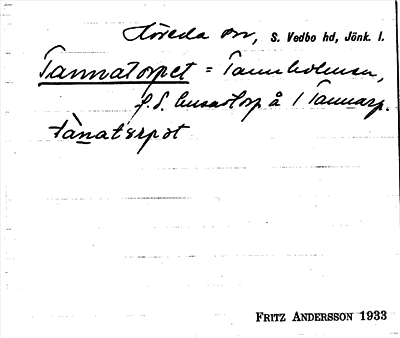 Höreda sn, S. Vedbo hd, Jönk. l.
Tannatorpet = Tannholmen,
f.d. båtsmanstorp å 1 Tannarp.
tànatərpət
FRITZ ANDERSSON 1933